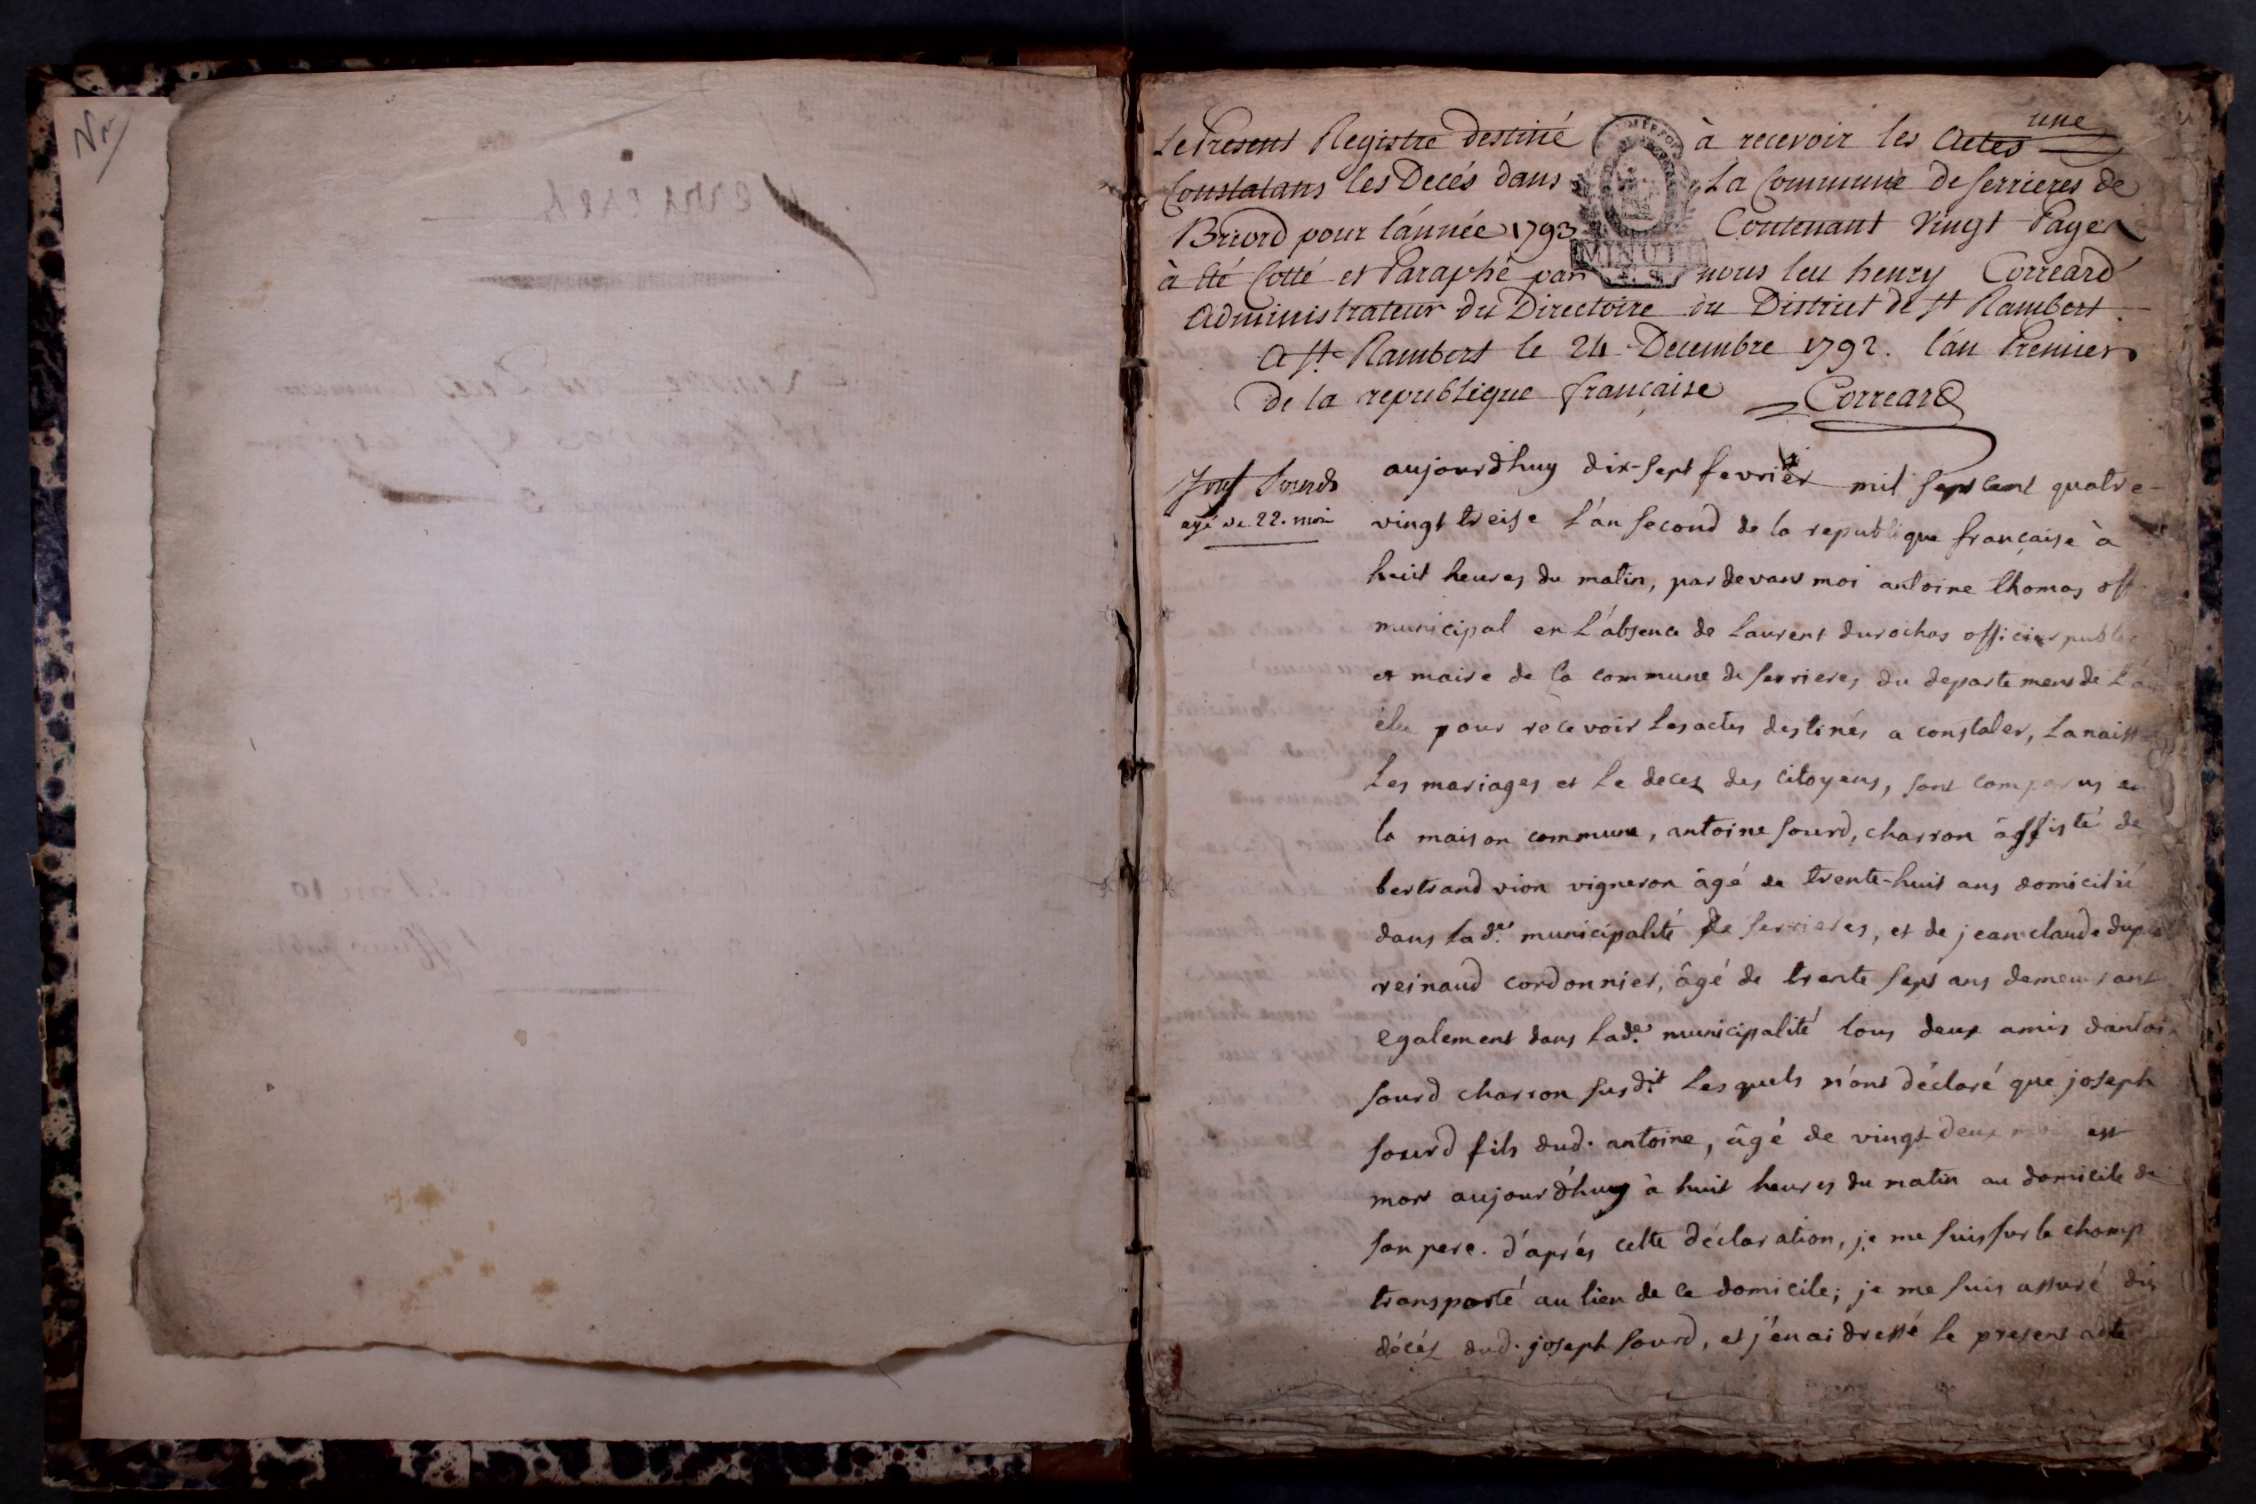 Nn
une
Le Present Registre destiné à recevoir les Actes
Constatans les Decés dans La Commune de Serrieres de
Briord pour l'année 1793 Contenant Vingt Pages
à été Cotté et Paraphé par nous leu henry Correard
MINUTE
Administrateur du Directoire du District de St Rambert
A St Rambert le 24 Decembre 1792. l'an Premier
de la republique française Correard
Josef Sourd
agé de 22. moi
aujourdhuy dix-sept fevrier mil sept cent quatre-
vingt treise l'an second de la republique française à
huit heures du matin, par devant moi antoine thomas off
municipal en l'absence de Laurent durochas officier public
et maire de la commune de serrieres, du departement de L'ain
élu pour recevoir les actes destinés a constater, la naiss
les mariages et le decez des citoyens, sont comparus en
la maison commune, antoine sourd, charron assisté de
bertrand vion vigneron âgé de trente-huit ans domicilié
dans lade. municipalité de serrieres, et de jean claude
reinaud cordonnier, âgé de trente sept ans demeurant
egalement dans lade. municipalité tous deux amis dantoi
sourd charron susdit Lesquels m'ont déclaré que joseph
sourd fils dud. antoine, âgé de vingt deux mois est
mort aujourd'huy à huit heures du matin au domicile de
son pere. d'aprés cette déclaration, je me suis sur le champ
transporté au lieu de ce domicile; je me suis assuré du
décéz dud. joseph sourd, et j'en ai dressé le present acte